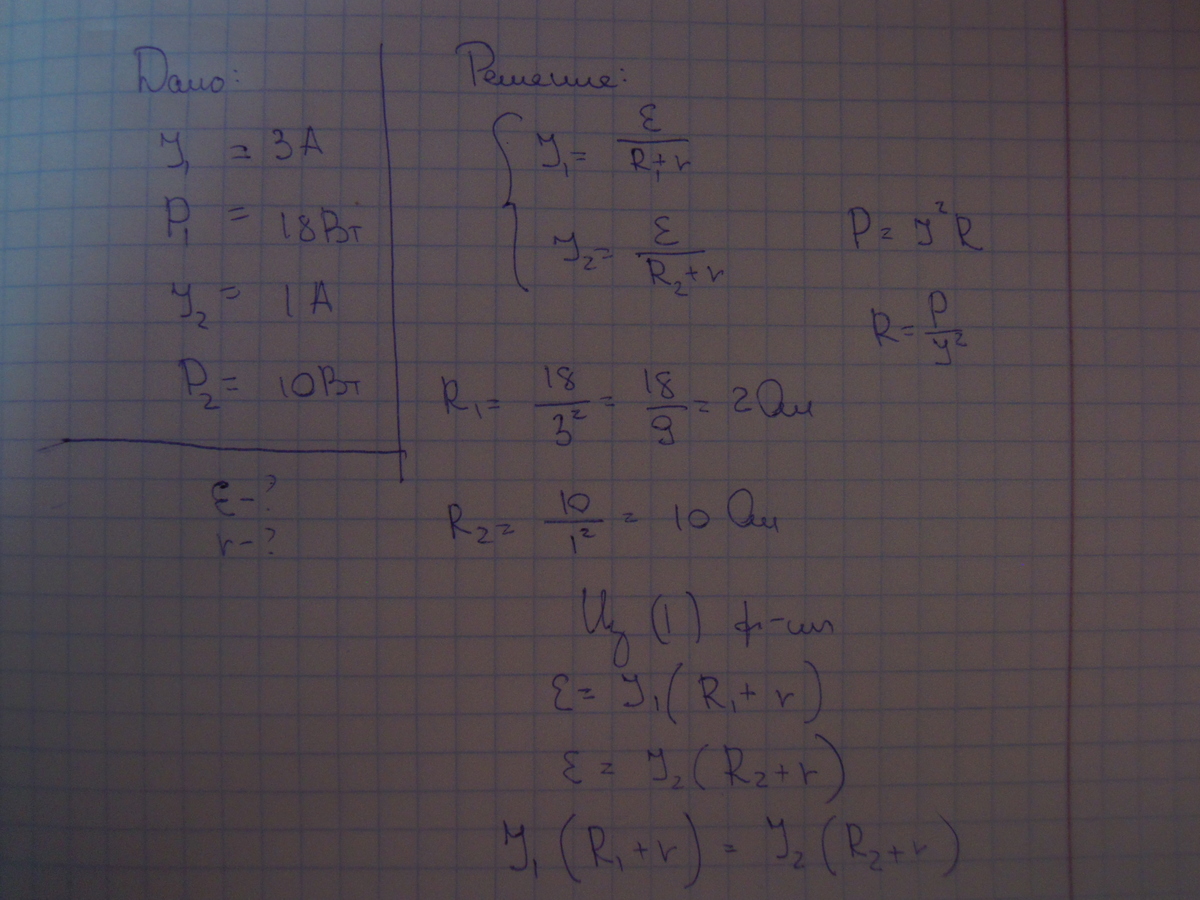 Дано:
I₁ = 3 А
P₁ = 18 Вт
I₂ = 1 А
P₂ = 10 Вт
ε - ?
r - ?
Решение:
I₁ = ε / (R₁ + r)
I₂ = ε / (R₂ + r)
P = I²R
R = P / I²
R₁ = 18 / 3² = 18 / 9 = 2 Ом
R₂ = 10 / 1² = 10 Ом
Из (1) ф-лы
ε = I₁ (R₁ + r)
ε = I₂ (R₂ + r)
I₁ (R₁ + r) = I₂ (R₂ + r)